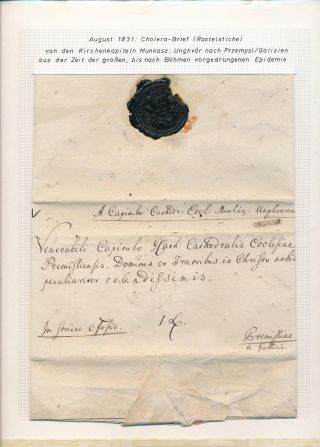 August 1831: Cholera-Brief (Rastelstiche)
von den Kirchenkapiteln Munkasz: Unghvár nach Przemysl/Galizien
aus der Zeit der großen, bis nach Böhmen vorgedrungenen Epidemie
A Capitulo Cathedr: Eccl. Munkán: Unghvarien
UNGHVAR
Venerabili Capitulo Cathedralis Ecclesiae
Premisliensis, Dominis et Fratribus in Christo nobis
peculiariter colendissimis.
In
Premisliae